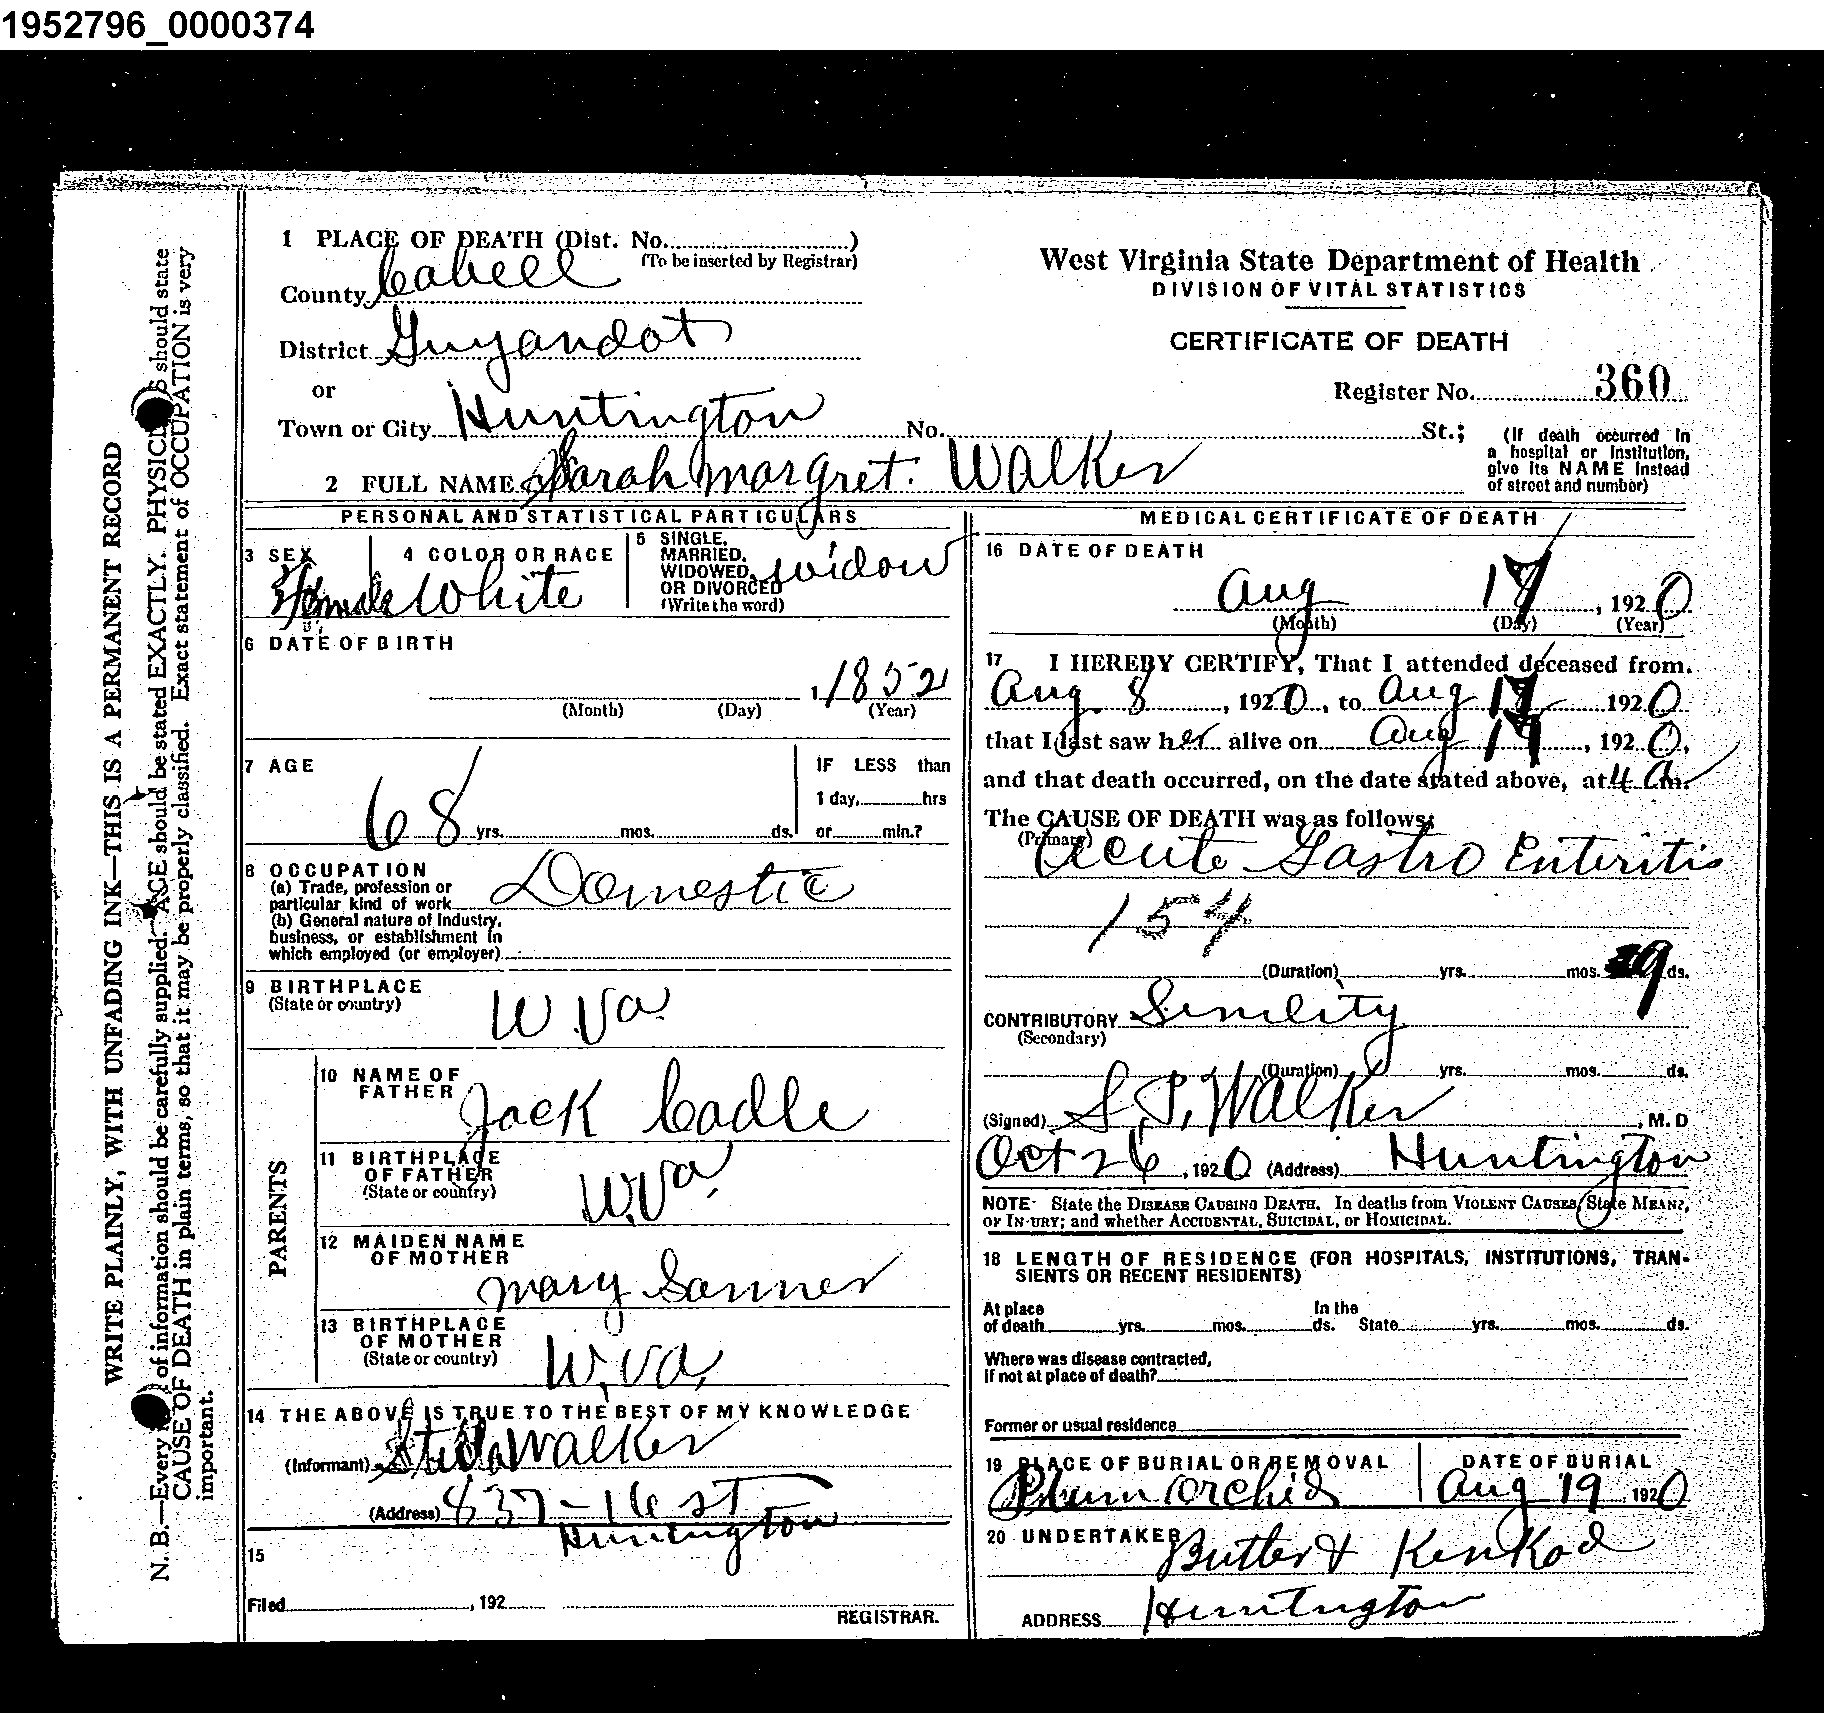 1952796_0000374
1 PLACE OF DEATH (Dist. No. )
(To be inserted by Registrar)
County Cabell
District Guyandot
or
Town or City Huntington No. St.;
(If death occurred in a hospital or institution, give its NAME instead of street and number)
2 FULL NAME Sarah Margret. Walker
West Virginia State Department of Health
DIVISION OF VITAL STATISTICS
CERTIFICATE OF DEATH
Register No. 360
PERSONAL AND STATISTICAL PARTICULARS
3 SEX Female
4 COLOR OR RACE White
5 SINGLE, MARRIED, WIDOWED, OR DIVORCED (Write the word) widow
6 DATE OF BIRTH
, 1852
(Month) (Day) (Year)
7 AGE
68 yrs. mos. ds.
IF LESS than
1 day, hrs
or min.?
8 OCCUPATION
(a) Trade, profession or
particular kind of work Domestic
(b) General nature of industry,
business, or establishment in
which employed (or employer)
9 BIRTHPLACE
(State or country) W.Va.
PARENTS
10 NAME OF
FATHER Jack Cadle
11 BIRTHPLACE
OF FATHER
(State or country) W.Va.
12 MAIDEN NAME
OF MOTHER Mary Sanner
13 BIRTHPLACE
OF MOTHER
(State or country) W.Va.
14 THE ABOVE IS TRUE TO THE BEST OF MY KNOWLEDGE
(Informant) Walker
(Address) 837-16 st
Huntington
15
Filed , 192
REGISTRAR.
MEDICAL CERTIFICATE OF DEATH
16 DATE OF DEATH
Aug 17, 1920
(Month) (Day) (Year)
17 I HEREBY CERTIFY, That I attended deceased from.
Aug 8, 1920, to Aug 17 1920
that I last saw her alive on Aug , 1920,
and that death occurred, on the date stated above, at 4 a.m.
The CAUSE OF DEATH was as follows:
(Primary) Acute Gastro Enteritis
154
(Duration) yrs. mos. 9 ds.
CONTRIBUTORY Senility
(Secondary)
(Duration) yrs. mos. ds.
(Signed) S.P. Walker, M. D
Oct 26, 1920 (Address) Huntington
NOTE- State the DISEASE CAUSING DEATH. In deaths from VIOLENT CAUSES, State MEANS,
OF INJURY; and whether ACCIDENTAL, SUICIDAL, or HOMICIDAL.
18 LENGTH OF RESIDENCE (FOR HOSPITALS, INSTITUTIONS, TRAN-
SIENTS OR RECENT RESIDENTS)
At place of death yrs. mos. ds. In the State yrs. mos. ds.
Where was disease contracted,
If not at place of death?
Former or usual residence
19 PLACE OF BURIAL OR REMOVAL DATE OF BURIAL
Plum Orchid Aug 19 1920
20 UNDERTAKER Butler & Kenkod
ADDRESS Huntington
WRITE PLAINLY, WITH UNFADING INK—THIS IS A PERMANENT RECORD
N. B.—Every of information should be carefully supplied. AGE should be stated EXACTLY. PHYSICI S should state
CAUSE OF DEATH in plain terms, so that it may be properly classified. Exact statement of OCCUPATION is very
important.